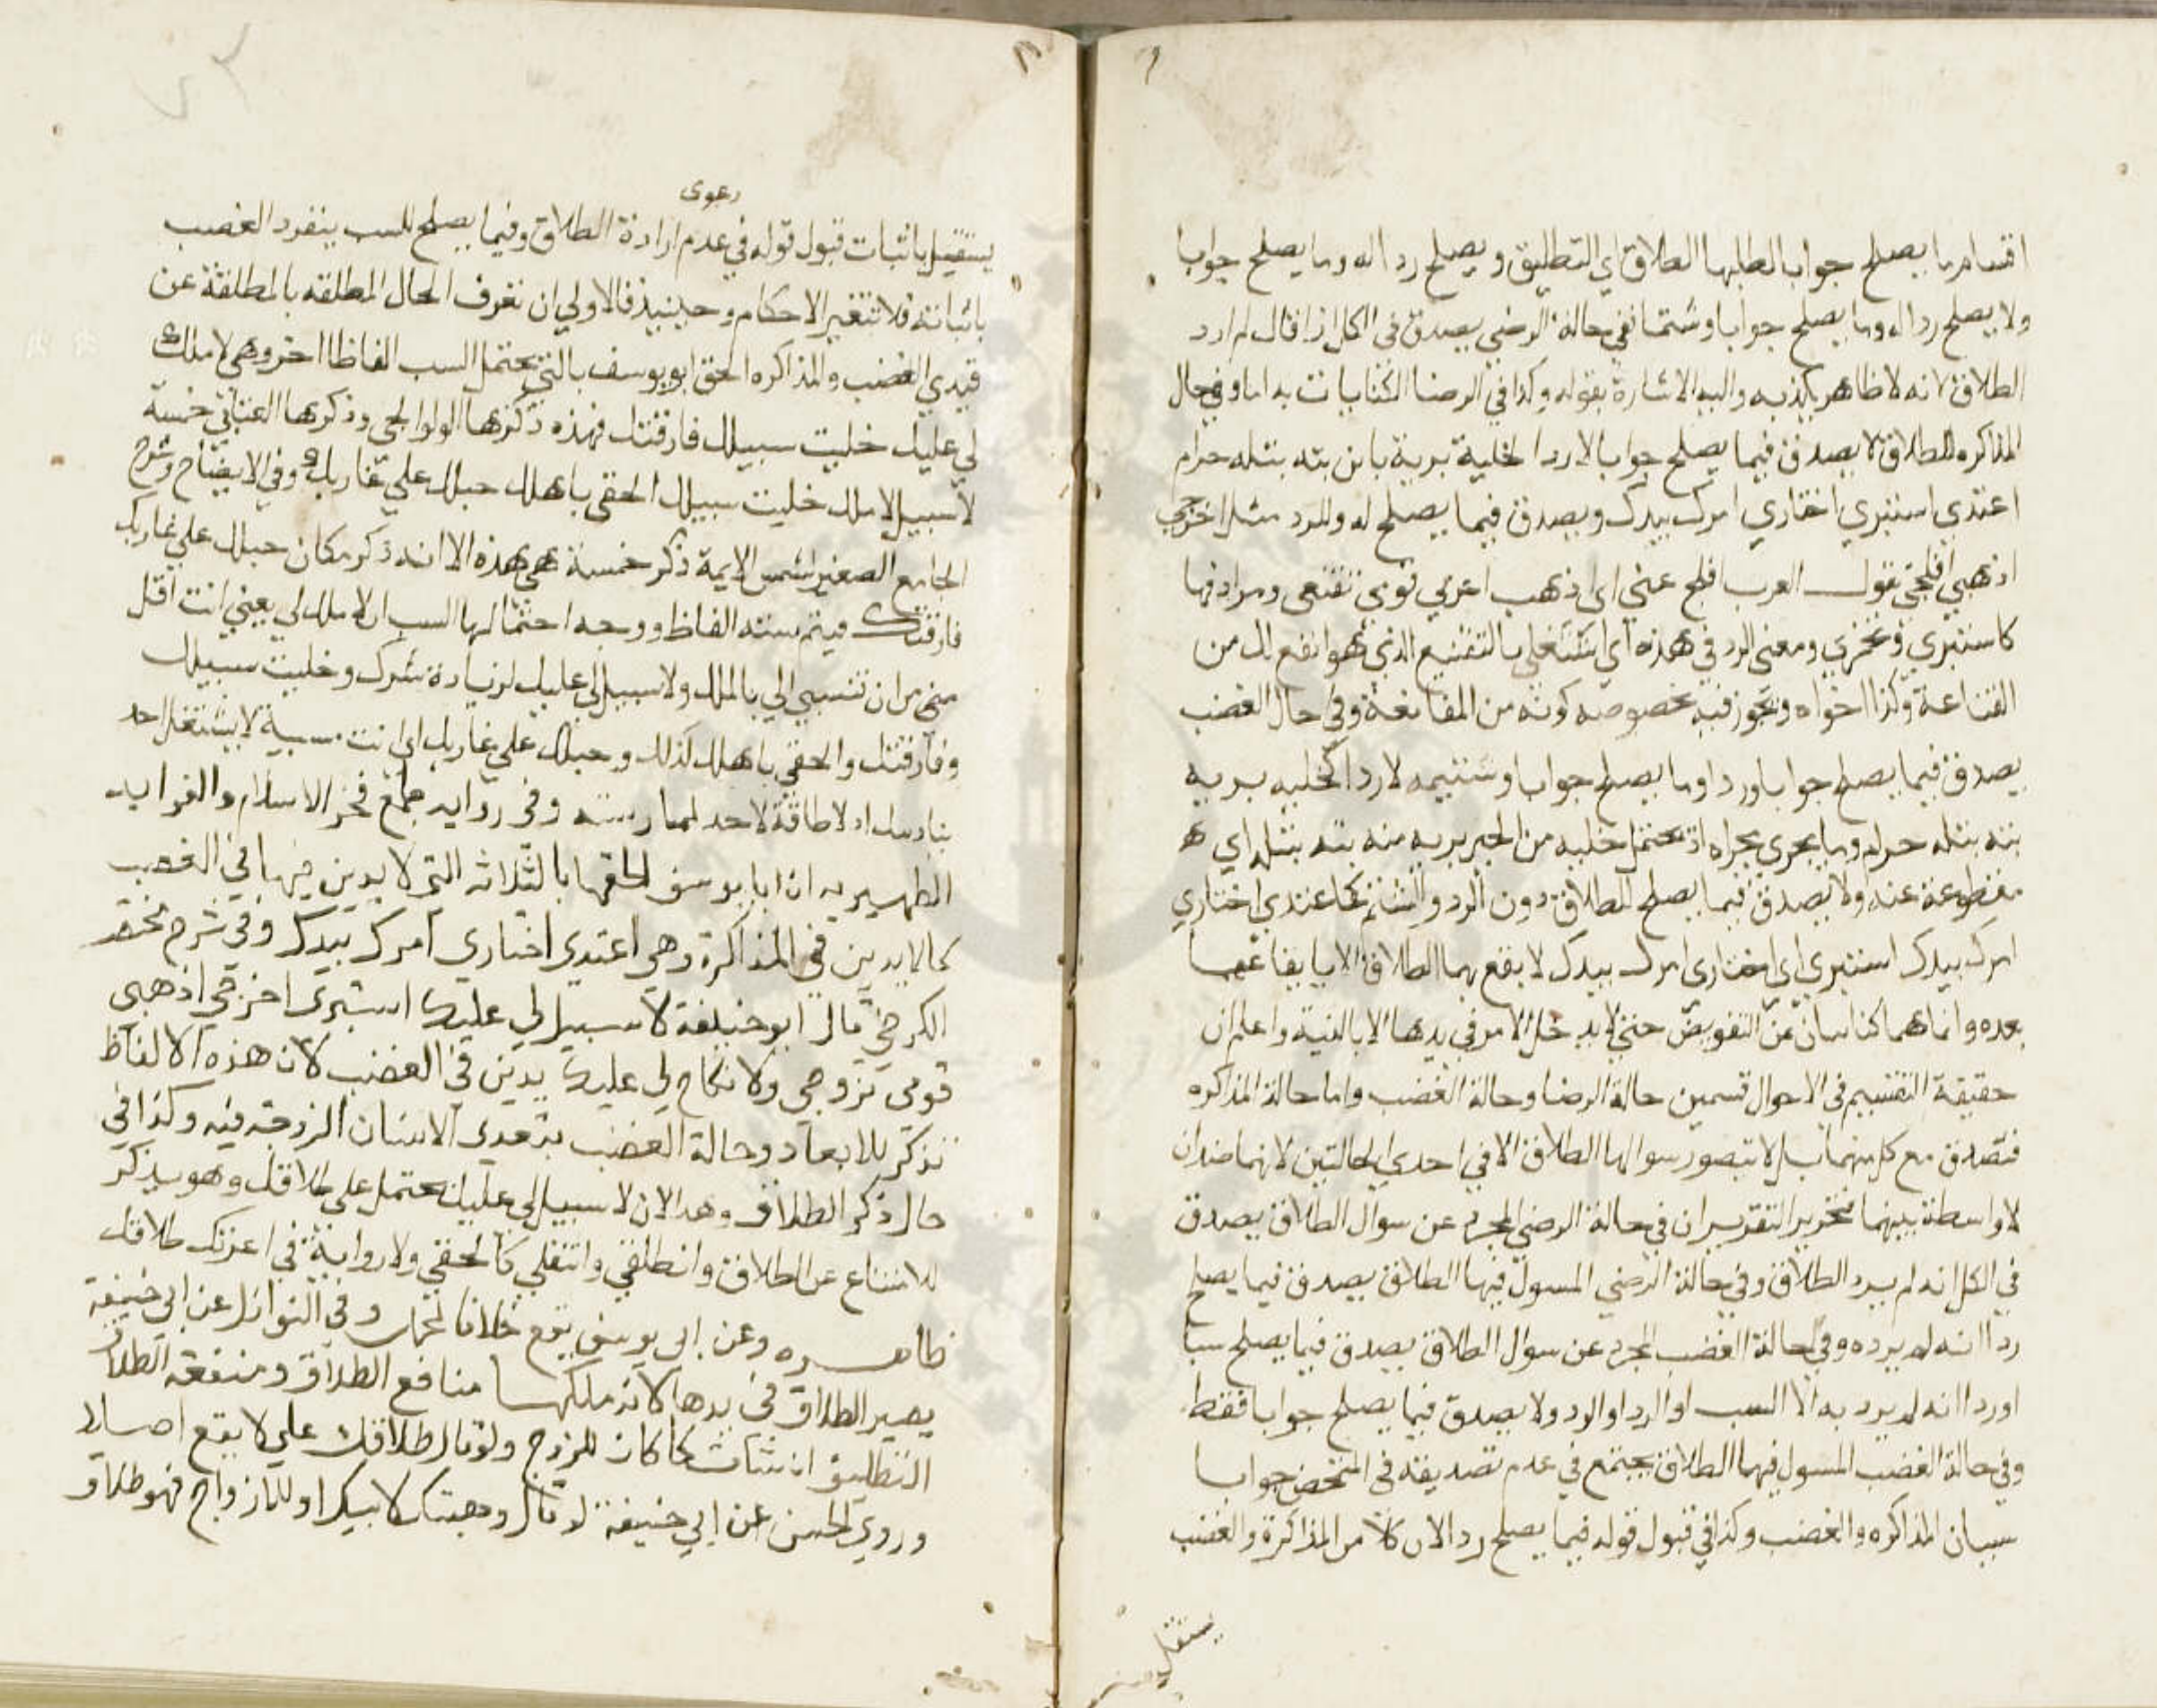 اقسام ما يصلح جوابا لطلبها الطلاق اي التطليق و يصلح ردا له وما يصلح جوابا
ولا يصلح ردا له وما يصلح جوابا وشتما ففي حالة الرضي يصدق في الكل اذا قال لم ارد
الطلاق لانه لا ظاهر يكذبه واليه الاشارة بقوله وكذا في الرضا
المذاكره للطلاق لا يصدق فيما يصلح جوابا لا ردا كخلية برية باين بته بتله حرام
اعتدي استبري اختاري امرك بيدك ويصدق فيما يصلح له وللرد مثل اخرجي
اذهبي افلحي تقول العرب افلح عني اي اذهب اعزبي قومي تقنعي ومرادفها
كاستتري وتخمري ومعنى الرد في هذه اي اشتغلي بالتقنيع الذي هو انفع لك من
القناعة وكذا اخواه ويجوز فيه بخصوصه كونه من المقانعة وفي حال الغضب
يصدق فيما يصلح جوابا وردا وما يصلح جوابا وشتيمه لا ردا كخليه بريه
بته بتله حرام وما يجري مجراه اذ يحتمل خليه من الخير بريه منه بته بتله اي
مقطوعة عنه ولا يصدق فيما يصلح للطلاق دون الرد والشتم كاعتدي اختاري
امرك بيدك استبري اي اختاري امرك بيدك لا يقع بهما الطلاق الا بايقاعها
بعده وانما هما كنايتان عن التفويض حتى لا يدخل الامر في يدها الا بالنية واعلم ان
حقيقة التقسيم في الاحوال قسمين حالة الرضا وحالة الغضب واما حالة المذاكره
فتصدق مع كل منهما بل لا تتصور سوالها الطلاق الا في احدي الحالتين لانهما ضدان
لا واسطة بينهما فتحرير التقرير ان في حالة الرضي المجرد عن سوال الطلاق يصدق
في الكل انه لم يرد الطلاق وفي حالة الرضي المسول فيها الطلاق يصدق فيما يصلح
ردا انه لم يرده وفي حالة الغضب المجرد عن سوال الطلاق يصدق فيما يصلح سبا
او ردا انه لم يرد به الا السب او الرد ولا يصدق فيما يصلح جوابا فقط
وفي حالة الغضب المسول فيها الطلاق يجتمع في عدم تصديقه في المتمحض جوابا
سببان المذاكره والغضب وكذا في قبول قوله فيما يصلح ردا لان كلا من المذاكرة والغضب
يستقل
دعوى
يستقل باثبات قبول قوله في عدم ارادة الطلاق وفيما يصلح للسب ينفرد الغضب
باثباته فلا تتغير الاحكام وحينيذ فالاولي ان نعرف الحال المطلقه بالمطلقة عن
قيدي الغضب والمذاكره الحق ابو يوسف بالتي تحتمل السب الفاظا اخر وهي لا ملك
لي عليك خليت سبيلك فارقتك فهذه ذكرها الولوالجي وذكرها العتابي خمسة
لا سبيل لا ملك خليت سبيلك الحقي باهلك حبلك علي غاربك وفي الايضاح وشرح
الجامع الصغير لشمس الايمة ذكر خمسة هي هذه الا انه ذكر مكان حبلك علي غاربك
فارقتك فيتم ستة الفاظ ووجه احتمالها السب ان لا ملك لي يعني انت اقل
من ان تنسبي الي بالملك ولا سبيل لي عليك لزيادة شرك وخليت سبيلك
وفارقتك والحقي باهلك كذلك وحبلك علي غاربك اي انت مسيبة لا يشتغل احد
بتاديبك اذ لا طاقة لاحد بممارستك وفي رواية جامع فخر الاسلام والفوايد
الظهيريه ان ابا يوسف الحقها بالثلاثه التي لا يدين فيها في الغضب
كما لا يدين في المذاكرة وهي اعتدي اختاري امرك بيدك وفي شرح مختصر
الكرخي قال ابو حنيفة لا سبيل لي عليك استبري اخرجي اذهبي
قومي تزوجي ولا نكاح لي عليك يدين في الغضب لان هذه الالفاظ
تذكر للابعاد وحالة الغضب يبعد الانسان الزوجة فيه وكذا في
حال ذكر الطلاق وهذا لان لا سبيل لي عليك يحتمل علي طلاقك وهو يذكر
للامتناع عن الطلاق وانطلقي وانتقلي كالحقي ولا رواية في اعرتك طلاقك
ظاهره وعن ابي يوسف يقع خلافا لمحمد وفي النوازل عن ابي حنيفة
يصير الطلاق في يدها لانه ملكها منافع الطلاق ومنفعة الطلاق
التطليق ان شات كما كان للزوج ولو قال طلاقك علي لا يقع اصلا
وروي الحسن عن ابي حنيفة لو قال وهبتك لابيك او للازواج فهو طلاق